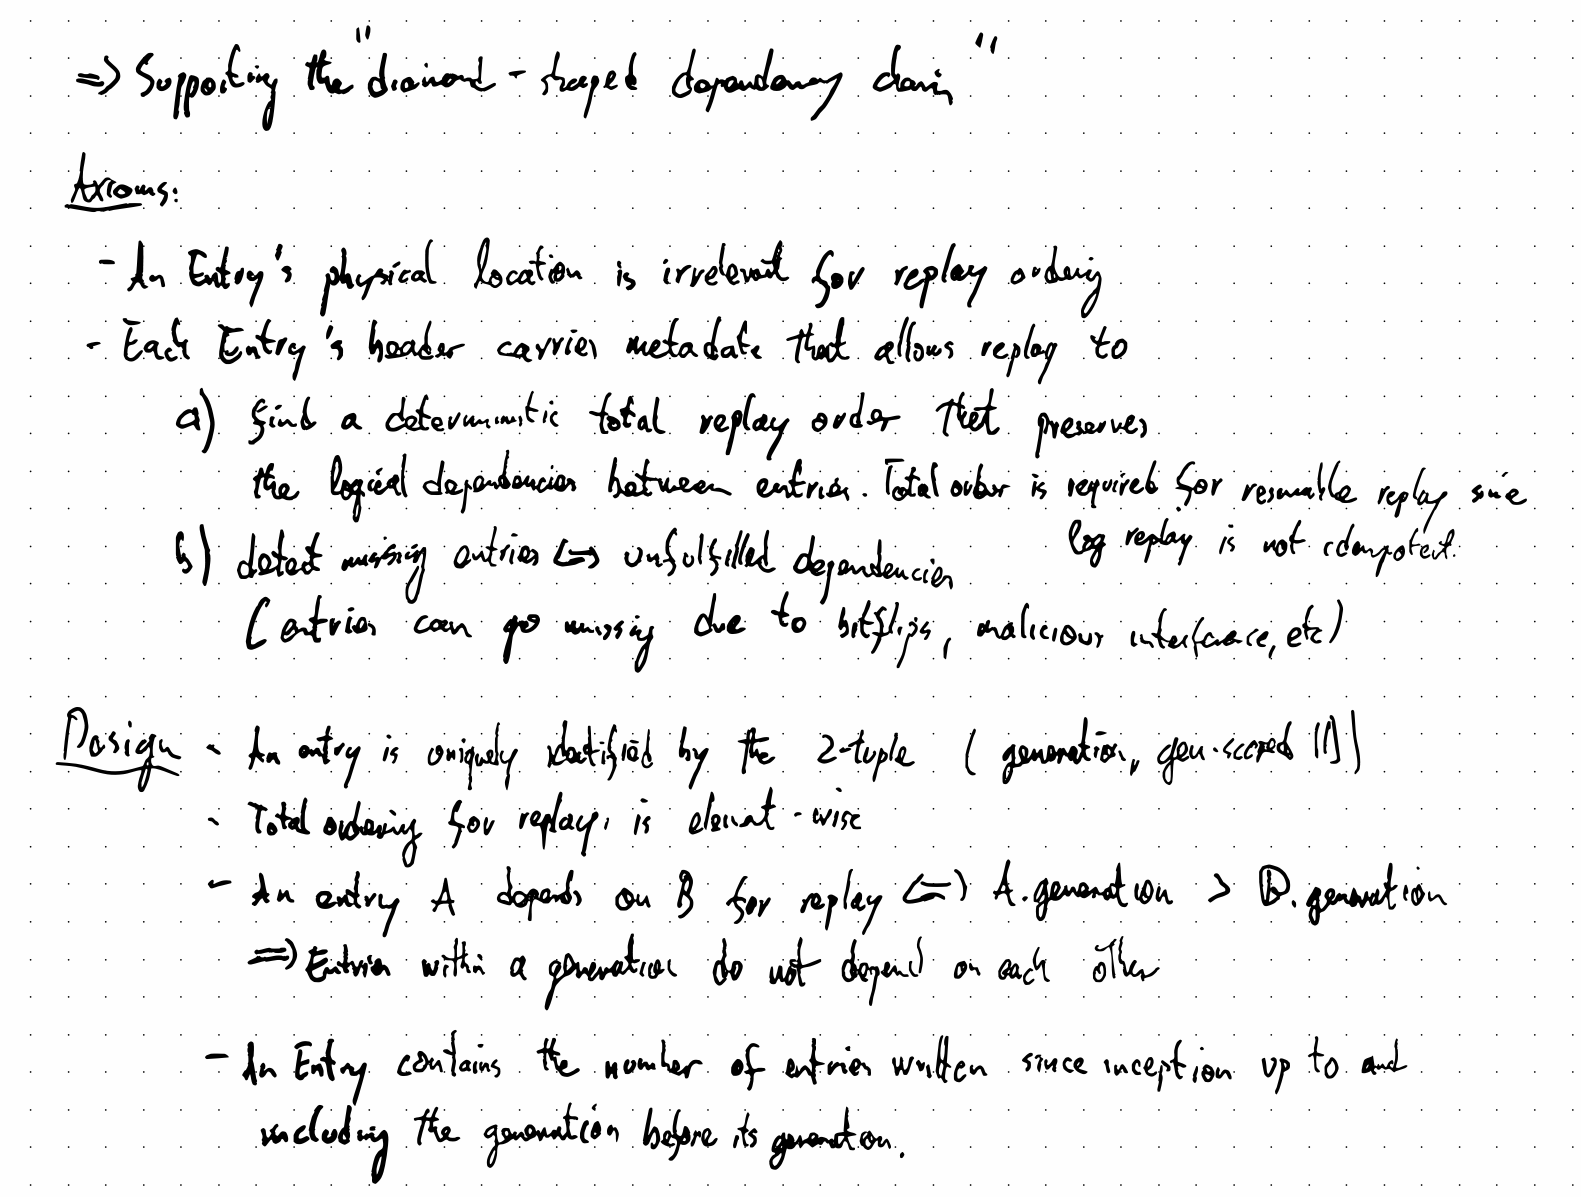 => Supporting the "diamond-shaped dependency chain"
Axioms:
- An Entry's physical location is irrelevant for replay ordering
- Each Entry's header carries metadata that allows replay to
a) find a deterministic total replay order that preserves
the logical dependencies between entries. Total order is required for resumable replay since
log replay is not idempotent.
b) detect missing entries <=> unfulfilled dependencies
(entries can go missing due to bitflips, malicious interference, etc)
Design - An entry is uniquely identified by the 2-tuple (generation, gen-scoped ID)
- Total ordering for replay is element-wise
- An entry A depends on B for replay <=> A.generation > B.generation
=> Entries within a generation do not depend on each other
- An Entry contains the number of entries written since inception up to and
including the generation before its generation.